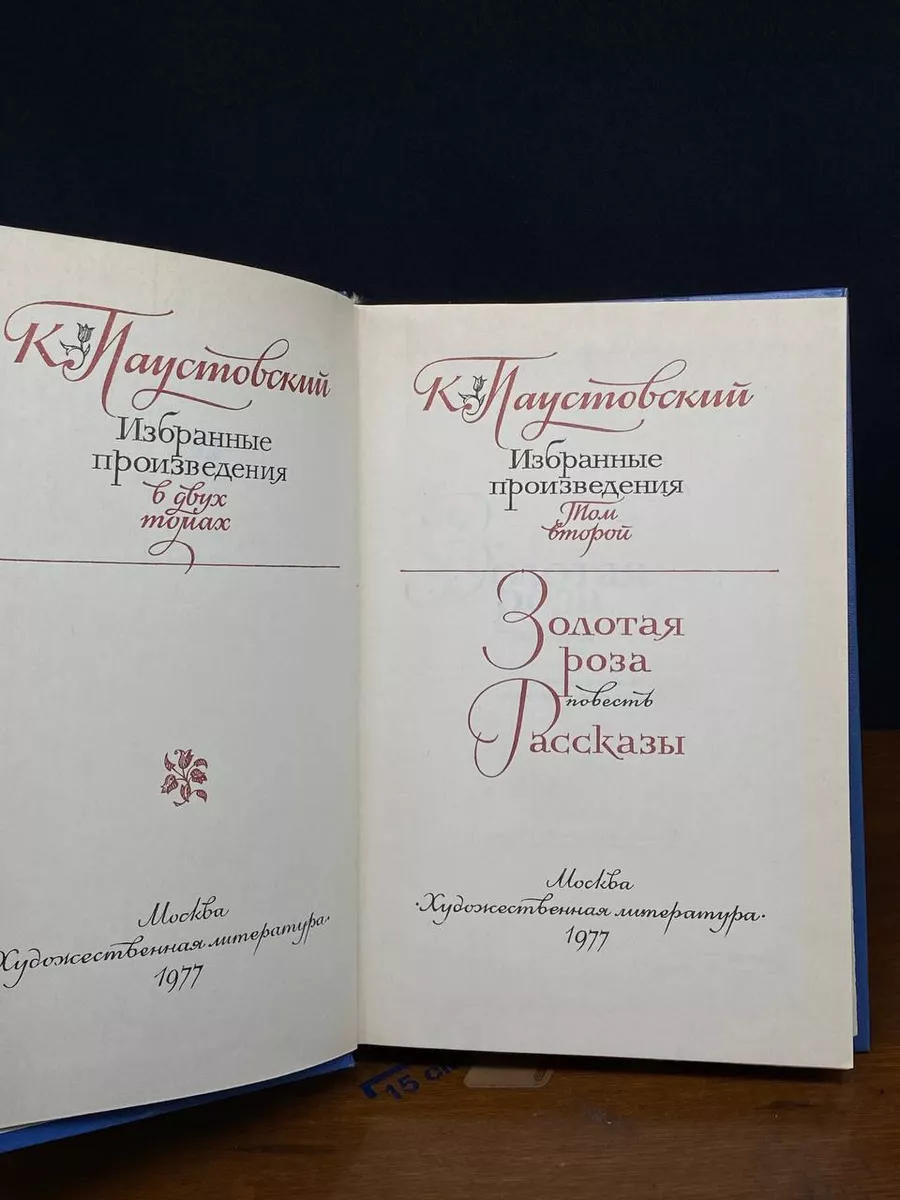 К. Паустовский
Избранные
произведения
в двух
томах
Москва
Художественная литература·
1977
К. Паустовский
Избранные
произведения
Том
второй
Золотая
роза
повесть
Рассказы
Москва
·Художественная литература·
1977
15 см